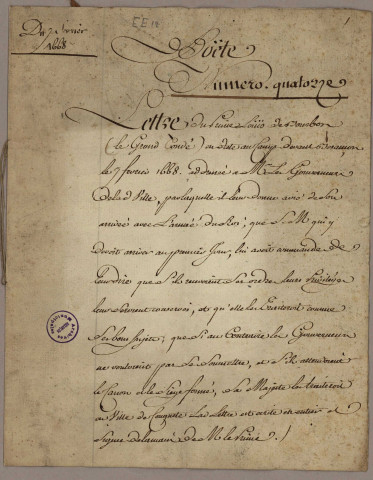 Du 7 fevrier
1668
EE 12
1
Boëte
Numero. quatorze
Lettre du Prince Loüis de Bourbon
(le Grand Condé) en date au Camp devant Besançon
le 7 fevrier 1668. adressé a Mrs les Gouverneurs
de lad. Ville, par laquelle il leur donne avis de son
arrivée avec l'armée du Roi; que S. M. qui y
devoit arriver au premier jour, lui avoit commandé de
leur dire que s'ils suivoient ses ordres leurs Privileges
leur seroient conservés, et qu'elle les traiteroit comme
ses bons sujets; que si au Contraire les Gouverneurs
ne vouloient pas se soumettre, et s'ils attendoient
le Canon et le Siege formé, sa Majesté les traiteroit
en Ville de Conquete. La Lettre est ecrite en entier et
signée de la main de M. le Prince.